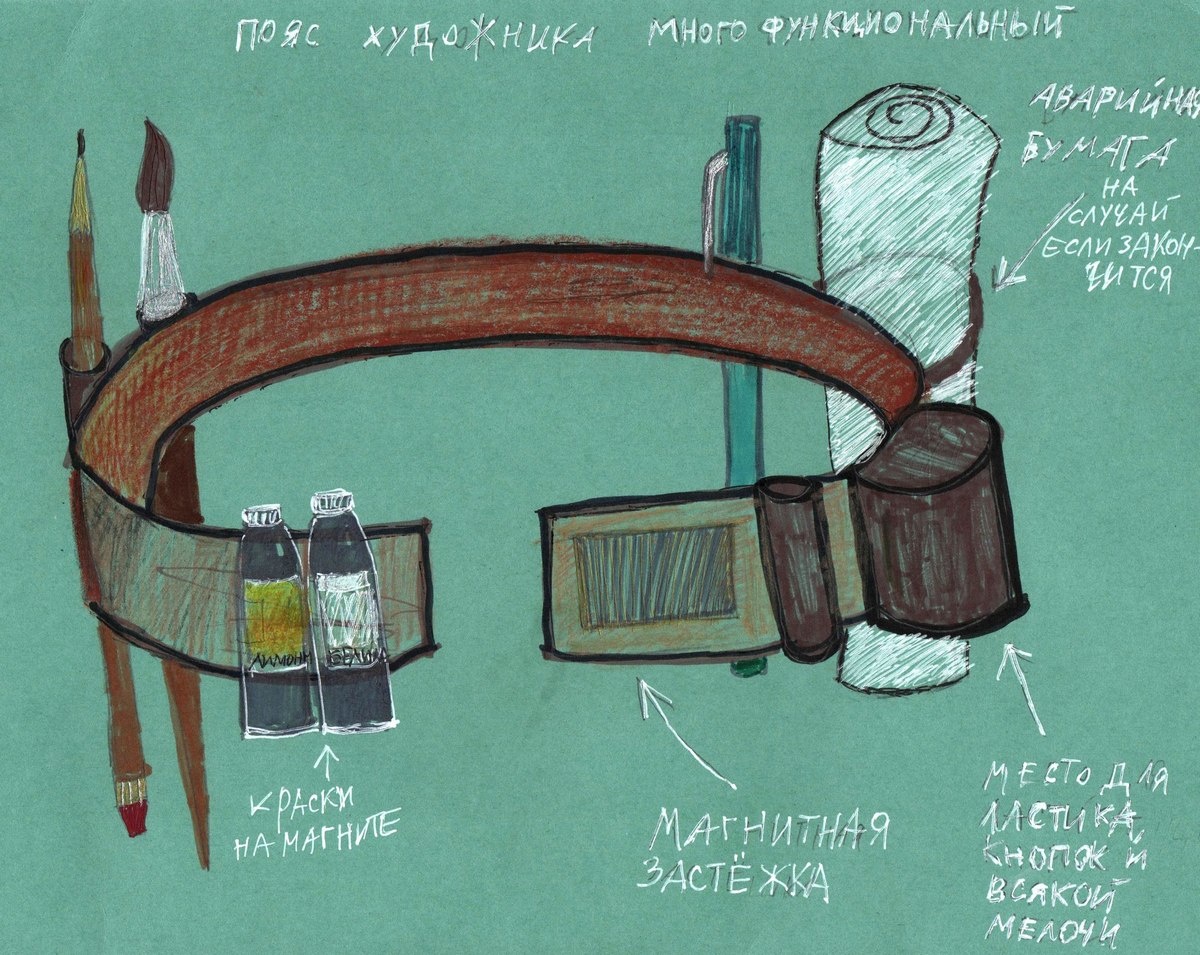 ПОЯС ХУДОЖНИКА МНОГОФУНКЦИОНАЛЬНЫЙ
АВАРИЙНАЯ
БУМАГА
НА
СЛУЧАЙ
ЕСЛИ ЗАКОН-
ЧИТСЯ
ЛИМОНН
БЕЛИЛА
КРАСКИ
НА МАГНИТЕ
МАГНИТНАЯ
ЗАСТЁЖКА
МЕСТО ДЛЯ
ЛАСТИКА,
КНОПОК И
ВСЯКОЙ
МЕЛОЧИ